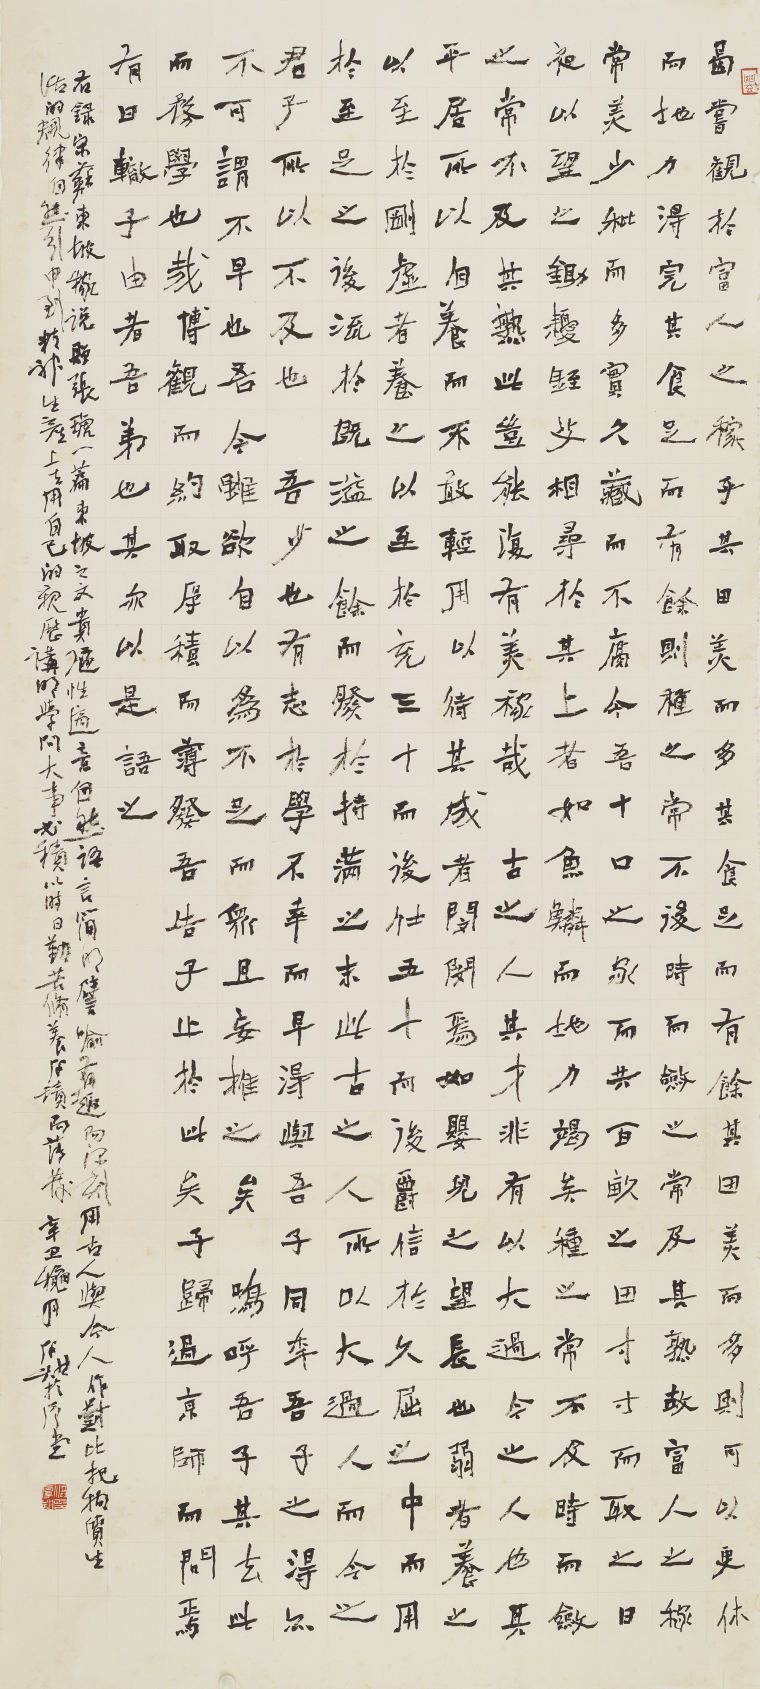 曷嘗觀於富人之稼乎其田美而多其食足而有餘其田美而多則可以更休
而地力得完其食足而有餘則種之常不後時而斂之常及其熟故富人之稼
常美少秕而多實久藏而不腐今吾十口之家而共百畝之田寸寸而取之日
夜以望之鋤耰銍艾相尋於其上者如魚鱗而地力竭矣種之常不及時而斂
之常不及其熟此豈能復有美稼哉古之人其才非有以大過今之人也其
平居所以自養而不敢輕用以待其成者閔閔焉如嬰兒之望長也弱者養之
以至於剛虛者養之以至於充三十而後仕五十而後爵信於久屈之中而用
於至足之後流於既溢之餘而發於持滿之末此古之人所以大過人而今之
君子所以不及也吾少也有志於學不幸而早得與吾子同年吾子之得亦
不可謂不早也吾今雖欲自以為不足而眾且妄推之矣嗚呼吾子其去此
而務學也哉博觀而約取厚積而薄發吾告子止於此矣子歸過京師而問焉
有曰轍子由者吾弟也其亦以是語之
右錄宋蘇東坡稼說贈張琥一篇東坡之文貴順性適意自然語言簡明譬喻有趣而深刻用古人與今人作對比把物質生
活的規律自然引申到精神生產上去用自己的親歷講明學問大事必積以時日勤苦修養厚積而薄發辛丑